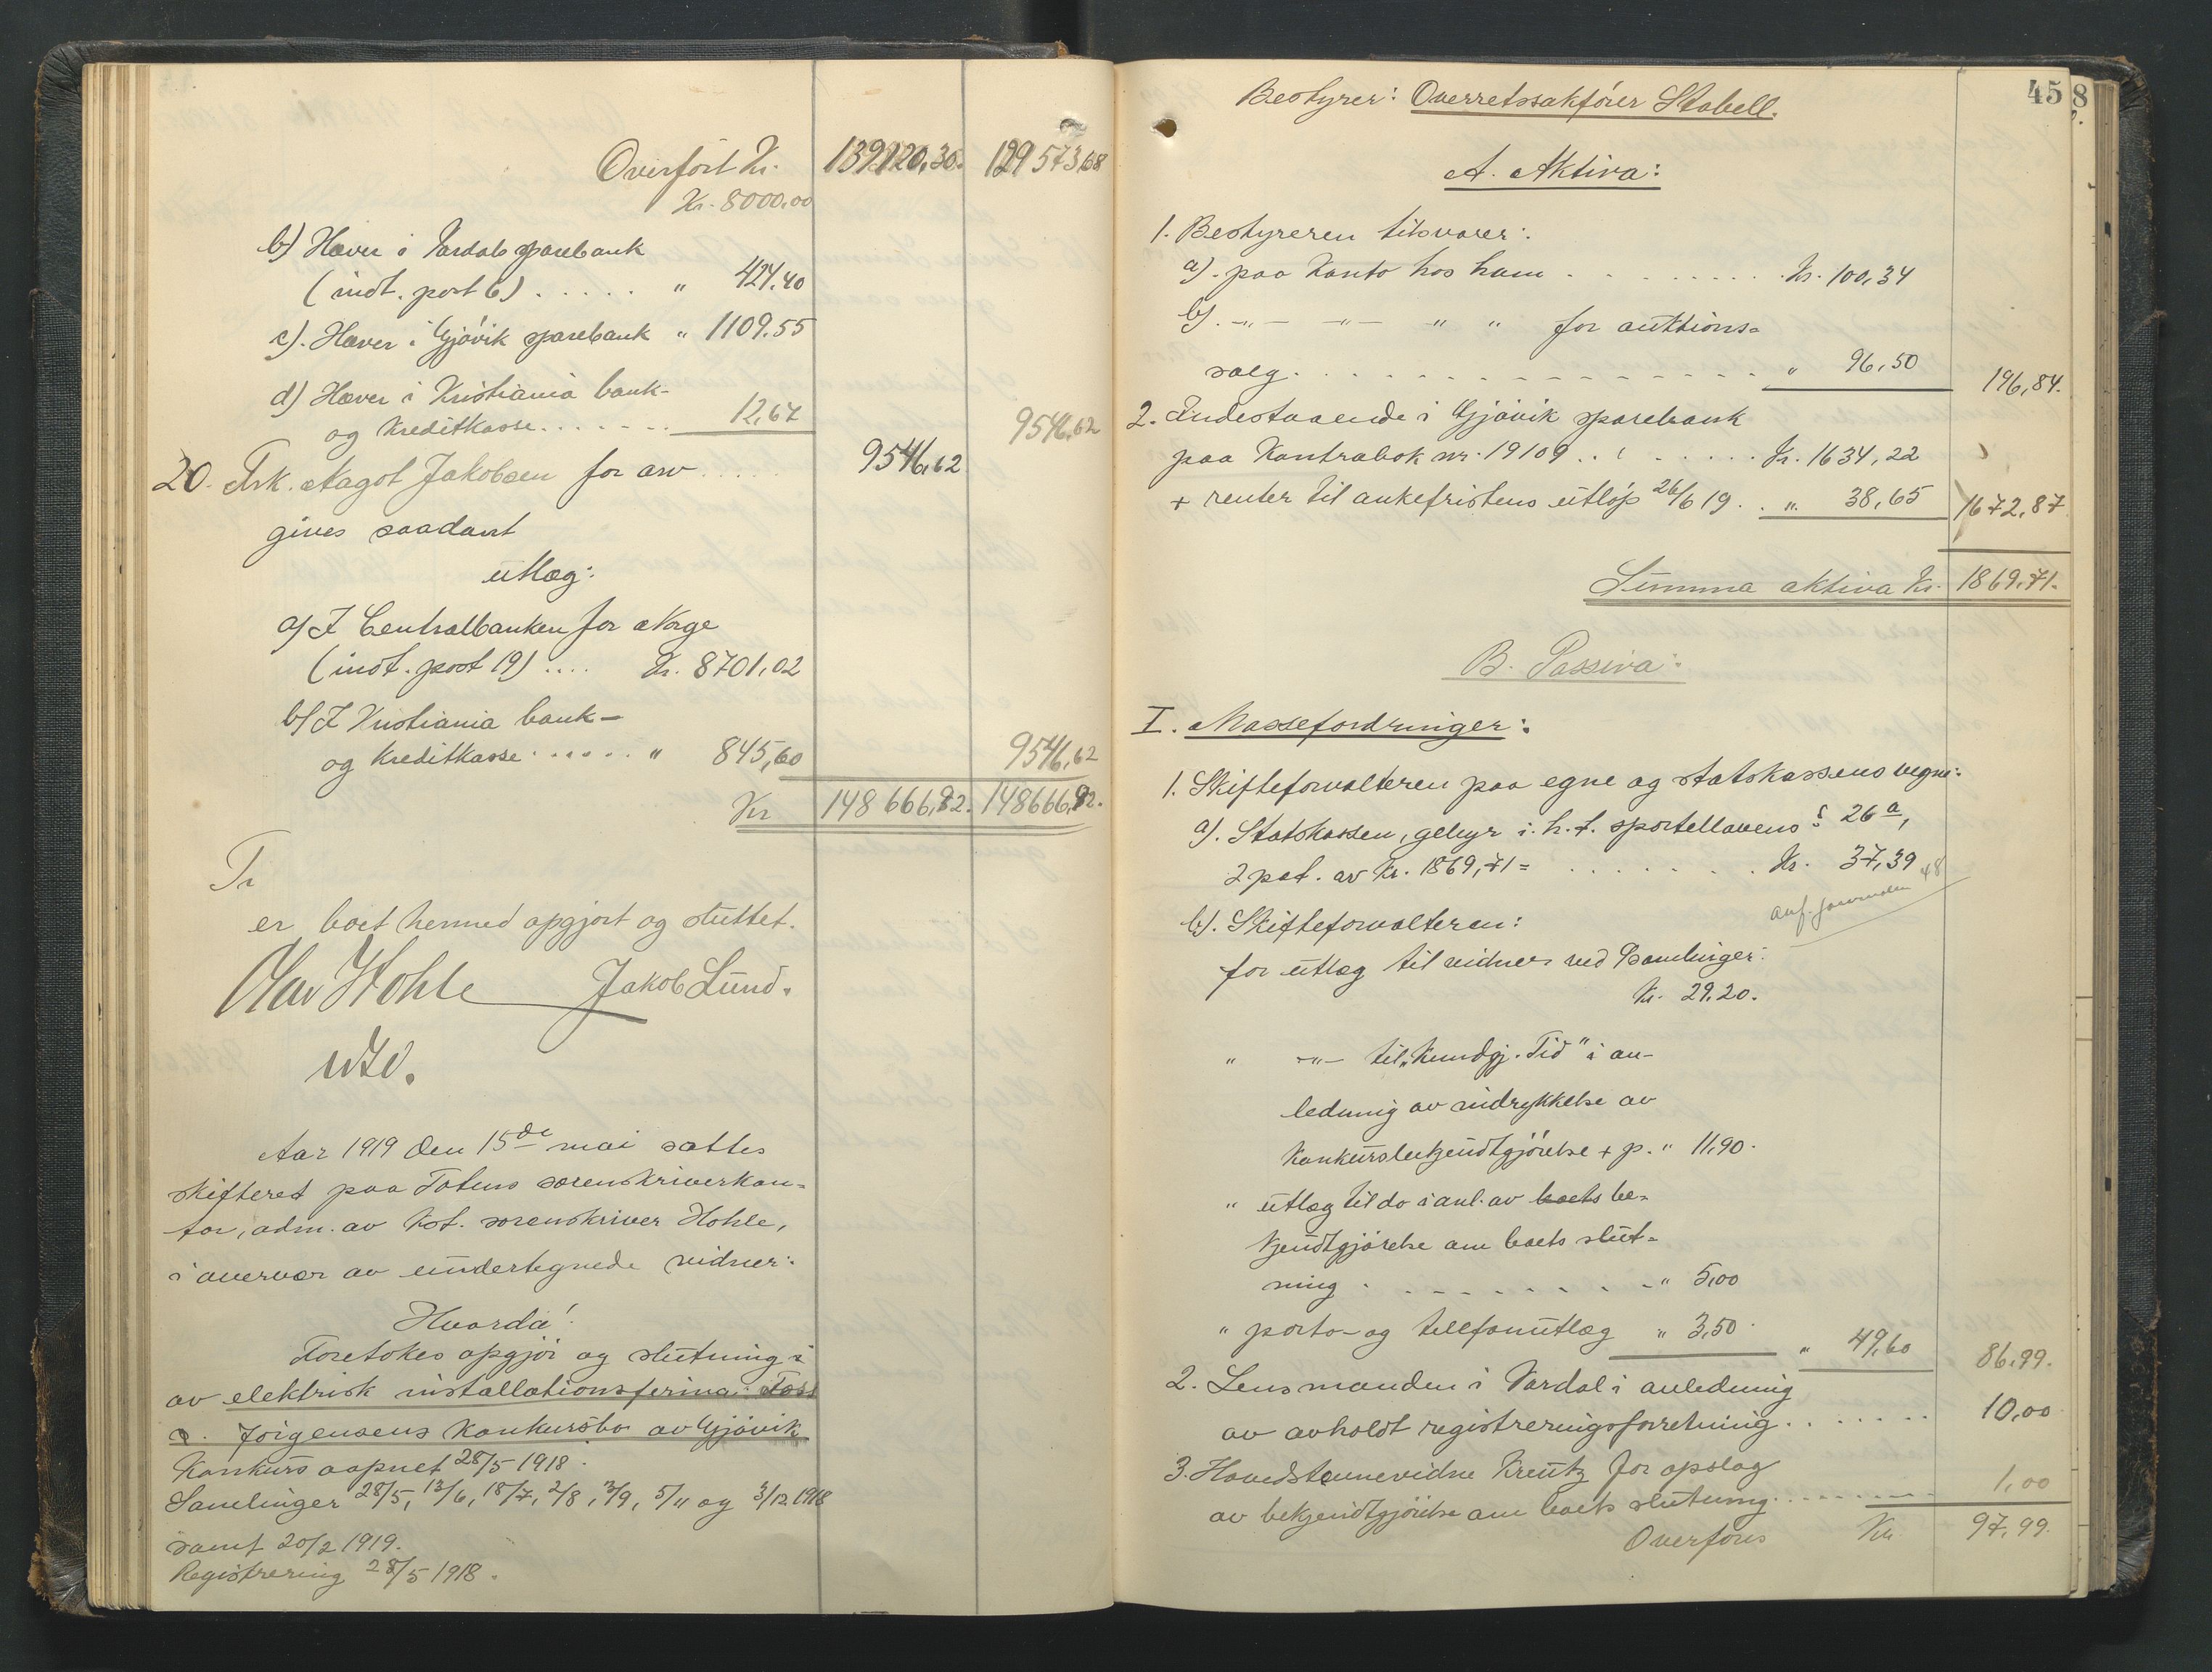 Overført Kr. 139120,30. 129573,68
Kr. 8000,00
b) Haver i Vardals sparebank
(indt. post 6) . . . . . " 424,40
c). Haver i Gjøvik sparebank " 1109.55
d) Haver i Kristiania bank-
og Kreditkasse . . . . . . . 12,67 9546,62
20. Frk. Aagot Jakobsen for arv . . . . 9546,62
gives saadant
utlæg:
a) I Centralbanken for Norge
(indt. post 19) . . . . Kr. 8701,02
b) I Kristiania bank-
og Kreditkasse . . . . . . " 845,60 9546,62
Kr 148666,92. 148666,92.
Tr
er boet hermed opgjort og sluttet.
Olav Hohle Jakob Lund.
Aar 1919 den 15de mai sattes
skifteret paa Totens sorenskriverkon=
tor, adm. av kst. sorenskriver Hohle,
i overvær av undertegnede vidner:
Hvorda!
Foretokes opgjør og slutning i
av elektrisk installationsfirma Foss
& Jørgensens konkursbo av Gjøvik
Konkurs aapnet 28/5 1918.
Samlinger 28/5, 12/6, 18/7, 2/8, 3/9, 5/11 og 3/12 1918
samt 20/2 1919.
Registrering 28/5 1918.
458
Bestyrer: Overretssakfører Stabell.
A. Aktiva:
1. Bestyreren tilsvarer:
a). paa Konto hos ham . . . . . . . . . Kr. 100,34
b). -"- -"- " " for auktions=
salg . . . . . . . . . . . . . . " 96,50 196,84.
2. Indestaaende i Gjøvik sparebank
paa Kontrabok nr. 19109 . . . . . . . . Kr. 1634,22
+ renter til ankefristens utløp 26/6 19 . . " 38,65 1672,87
Summa aktiva Kr. 1869,71.
B. Passiva:
I. Massefordringer:
1. Skifteforvalteren paa egne og statskassens vegne:
a). Statskassen, gebyr i. h. t. sportellovens § 26 a,
2 pct. av Kr. 1869,71 = . . . . . . . Kr. 37,39 48
anf. journalen
b). Skifteforvalteren:
for utlæg til vidner ved samlinger:
Kr. 29.20.
" -"- til "Kundgj. Tid" i an-
ledning av indrykkelse av
Konkursbekjendtgjørelse + p. " 11,90.
" utlæg til do i anl. av boets be-
kjendtgjørelse om boets slut=
ning . . . . . . . . . " 5,00
" porto- og telefonutlæg " 3,50. " 49,60 86,99.
2. Lensmanden i Vardal i anledning
av avholdt registreringsforretning . . . . . . . 10,00
3. Hovedstevnevidne Kreutz for opslag
av bekjendtgjørelse om boets slutning . . . . . . . . 1,00
Overføres Kr. 97,99.